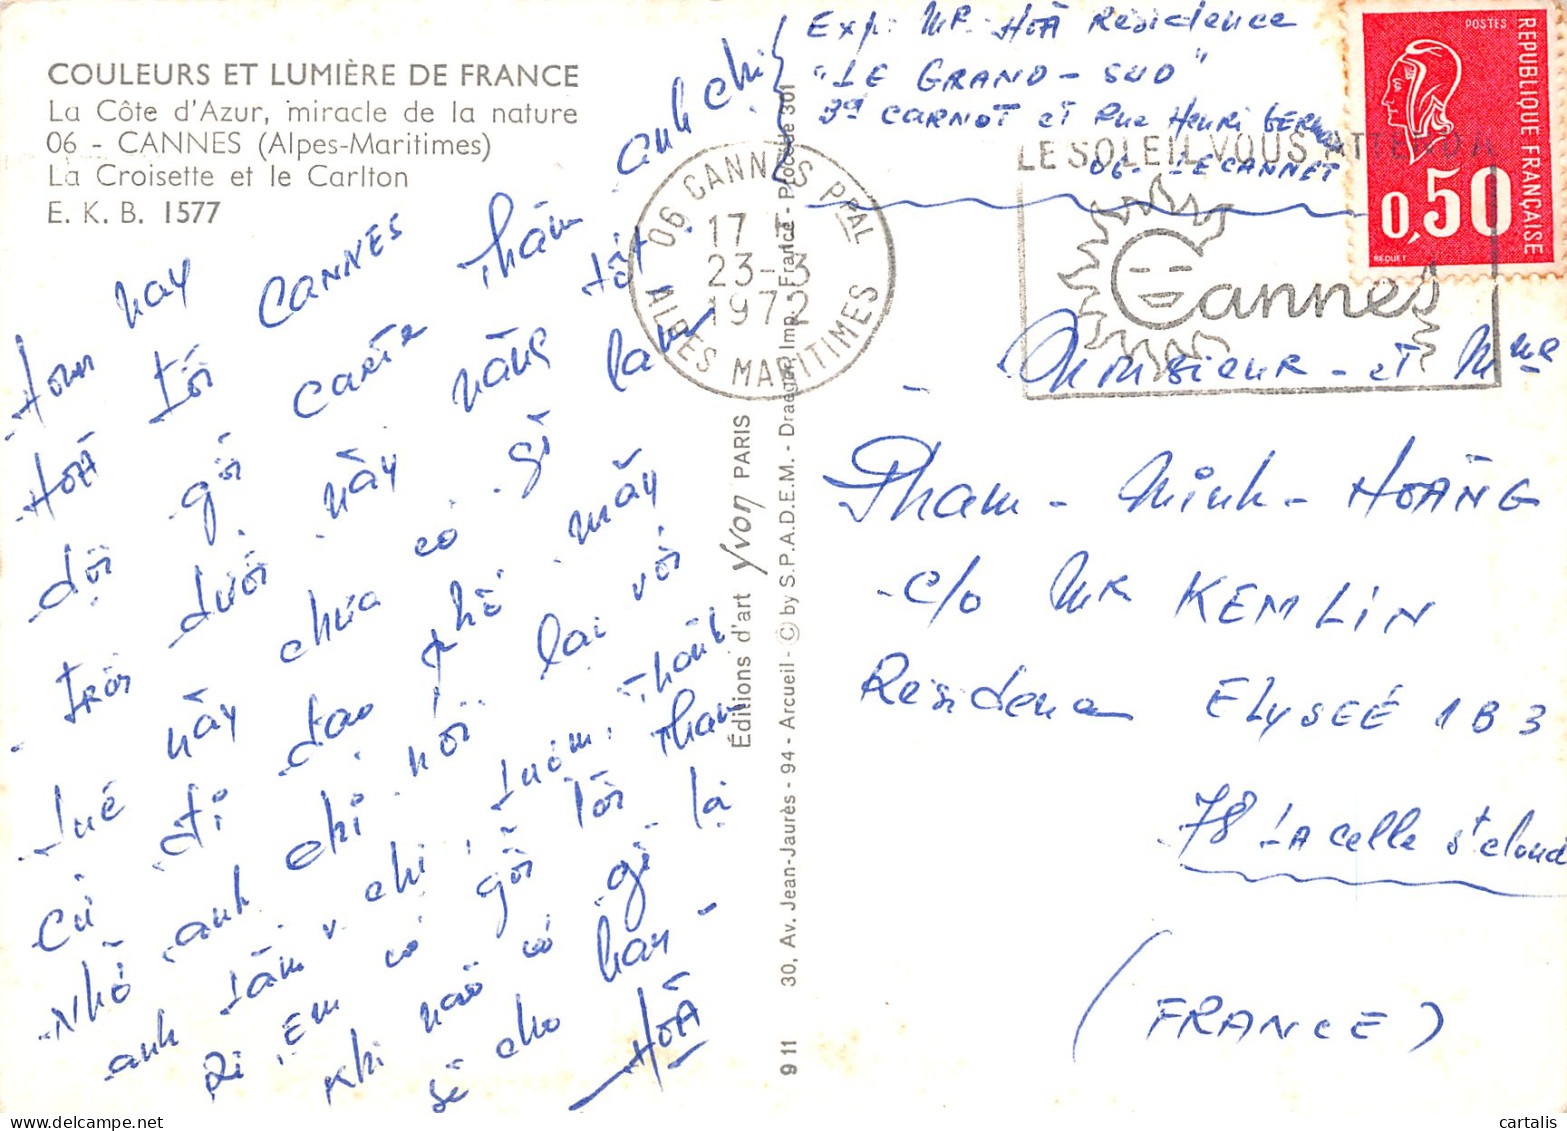 COULEURS ET LUMIÈRE DE FRANCE
La Côte d'Azur, miracle de la nature
06 - CANNES (Alpes-Maritimes)
La Croisette et le Carlton
E. K. B. 1577
Hôm nay CANNES Thăm anh chị
HOÀ tới carte tốt
đội gửi này nắng làm
trời dưới có gì
Tuế này chưa phê mấy
Cứ đi dạo lại với
Nhờ anh chị nói Thành
anh Tâm v chị Tươm, Tham
Ri Em có gởi lời
Khi nào có gì lạ
Sẽ cho hay -
HOÀ
Éditions d'art Yvon PARIS
30, Av. Jean-Jaurès - 94 - Arcueil - © by S.P.A.D.E.M. - Draeger, Imp. France - Procédé 301
9 11
06 CANNES PPAL
17 H
23-3
1972
ALPES MARITIMES
LE SOLEIL VOUS ATTEND A
Cannes
POSTES
REPUBLIQUE FRANÇAISE
0,50
BEQUET
Exp: MR. HOÀ Résidence
"LE GRAND-SUD"
Bd CARNOT et Rue Henri GERMAIN
06. LE CANNET
- Monsieur - et Mme
Pham - Minh - HOÀNG
c/o MR KEMLIN
Residence ELYSEÉ 1 B 3
78 La Celle St cloud
(FRANCE)